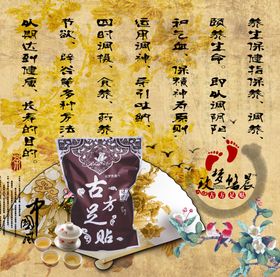 养生保健指保养、
颐养生命，即以调阴阳、
和气血、保精神为原则，
运用调神、导引吐纳、
四时调摄、食养、药养、
节欲、辟谷等多种方法，
以期达到健康、长寿的目的。
古方足贴
古方足贴
中國風